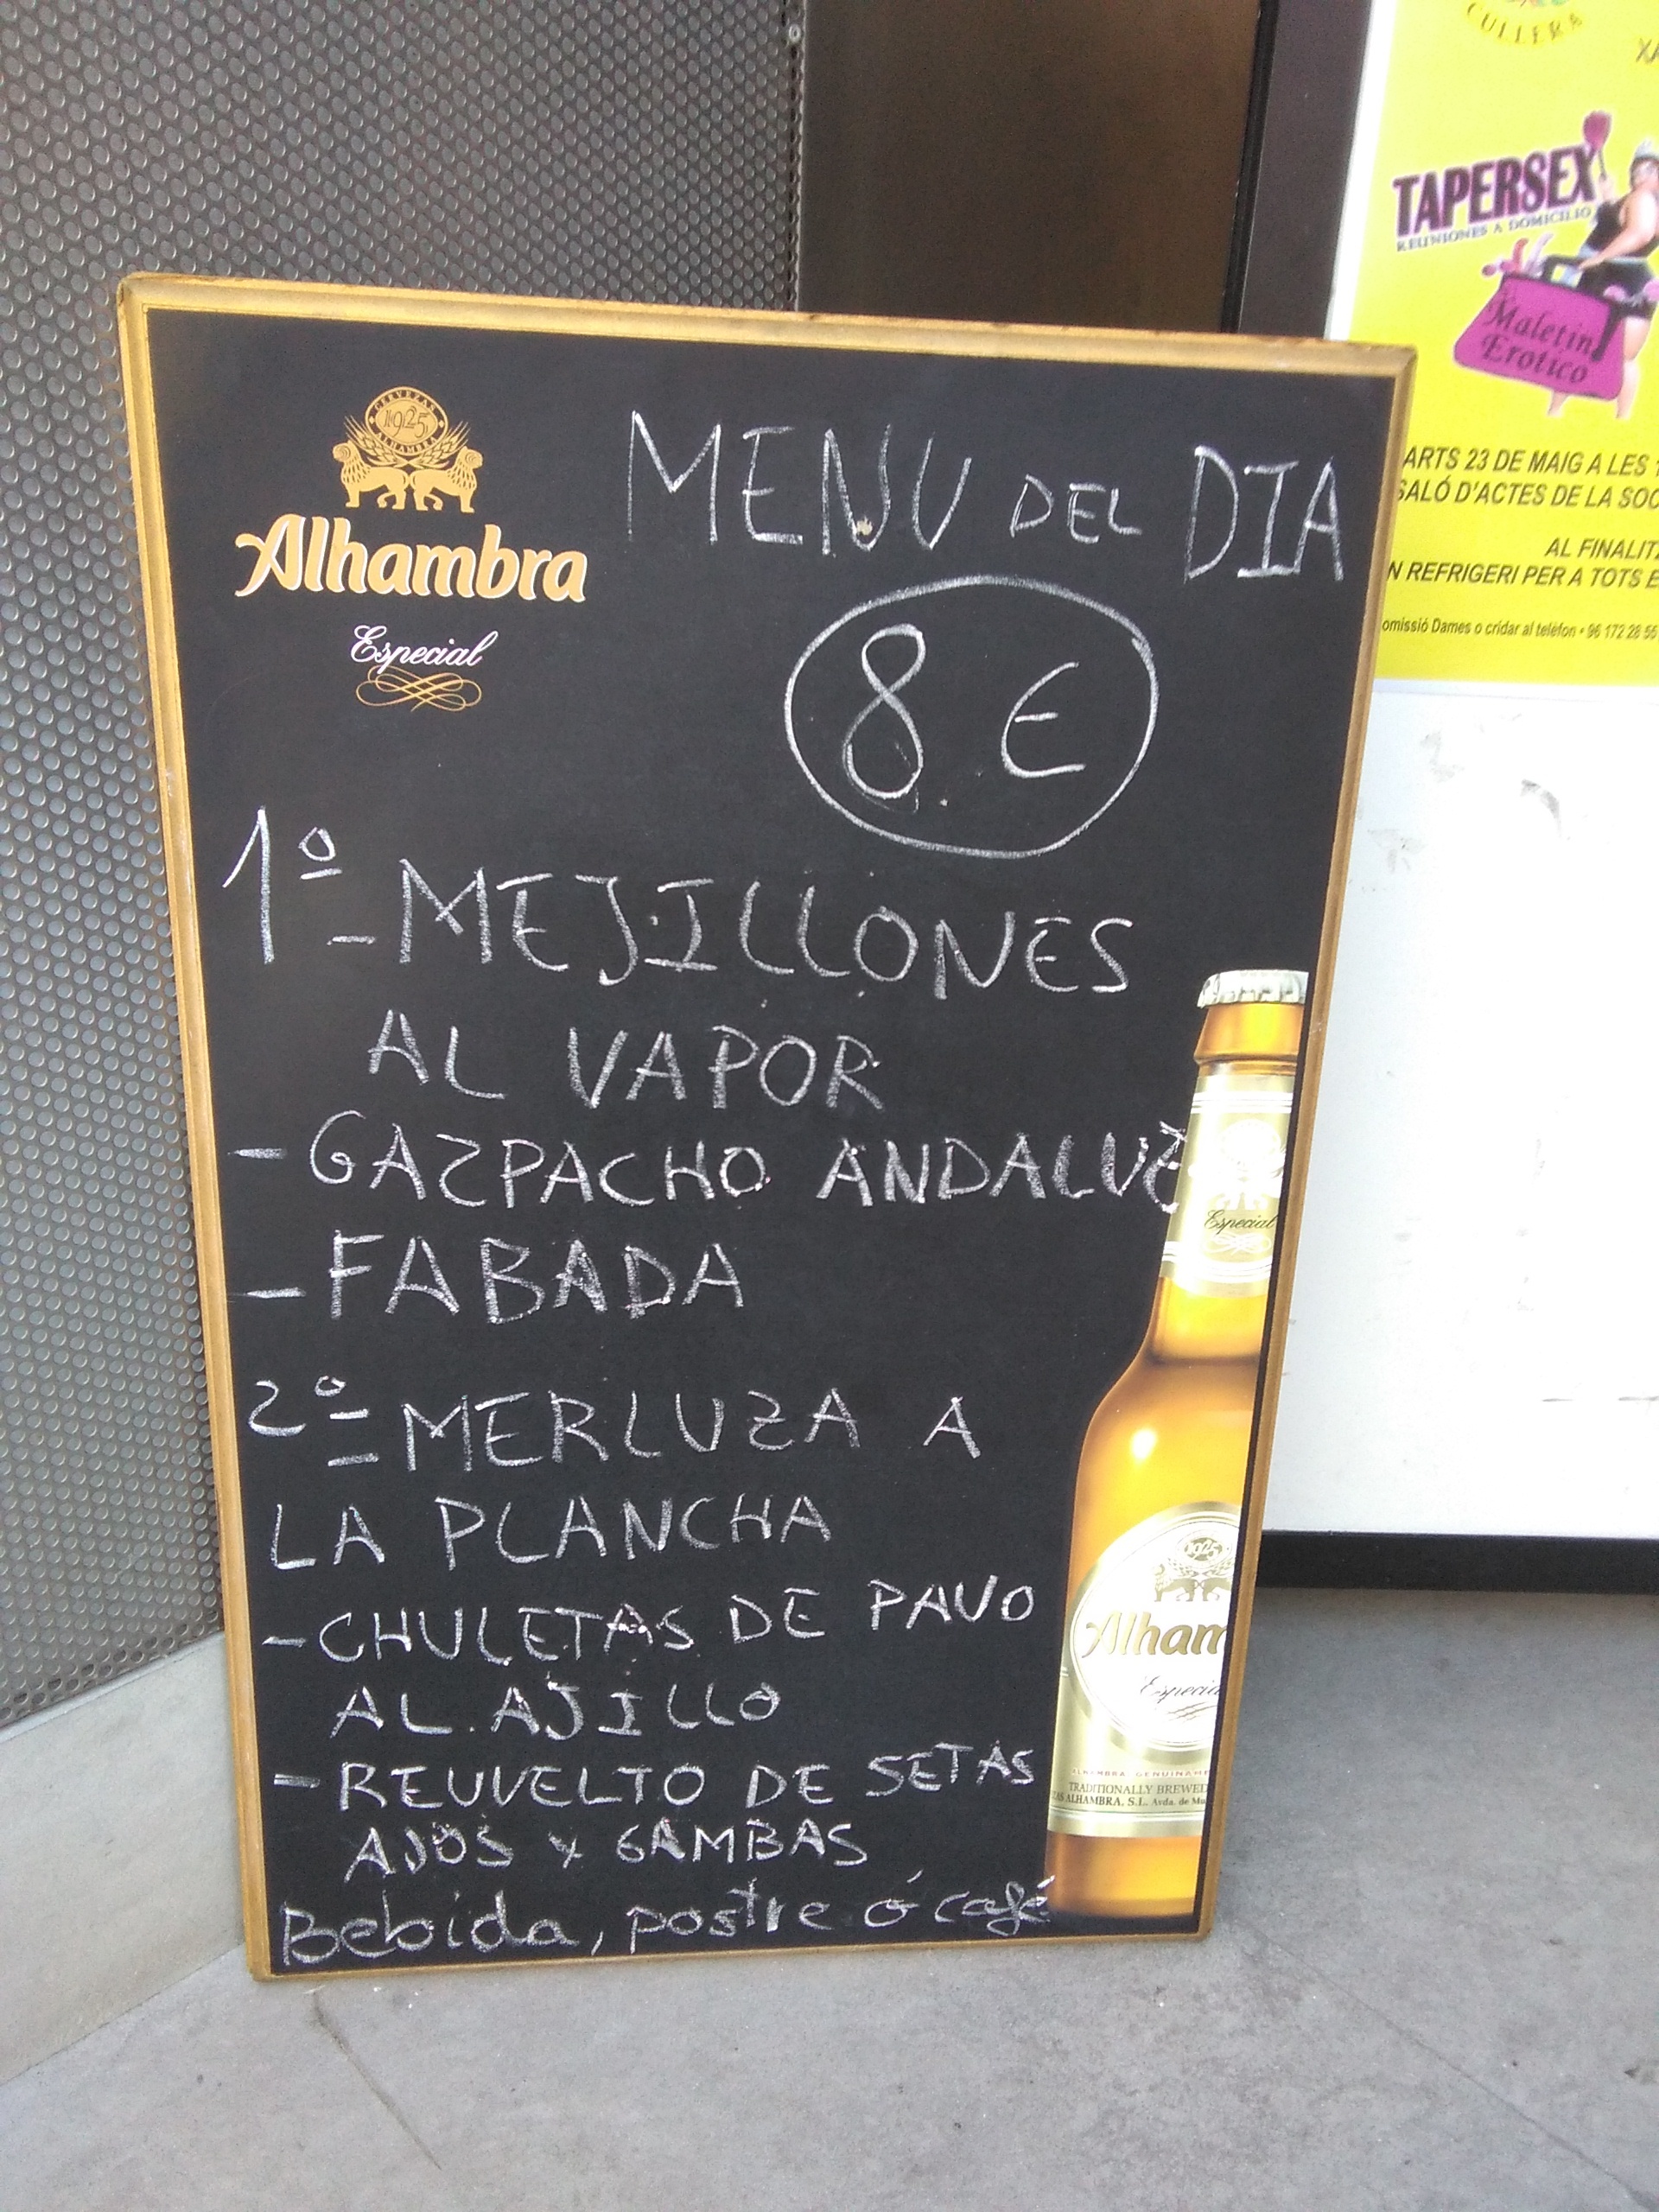 CERVEZAS
1925
ALHAMBRA
Alhambra
Especial
MENU DEL DIA
8 €
1º
- MEJILLONES
AL VAPOR
- GAZPACHO ANDALUZ
- FABADA
2º
- MERLUZA A
LA PLANCHA
- CHULETAS DE PAVO
AL AJILLO
- REUVELTO DE SETAS
AJOS Y GAMBAS
Bebida, postre ó café
Especial
1925
Alham
Especial
TRADITIONALLY BREWED
ALHAMBRA, S.L. Avda. de
CULLERA
XA
TAPERSEX
REUNIONES A DOMICILIO
Maletin
Erotico
ARTS 23 DE MAIG A LES 1
SALÓ D'ACTES DE LA SOC
AL FINALITZ
N REFRIGERI PER A TOTS E
omissió Dames o cridar al telèfon • 96 172 28 55